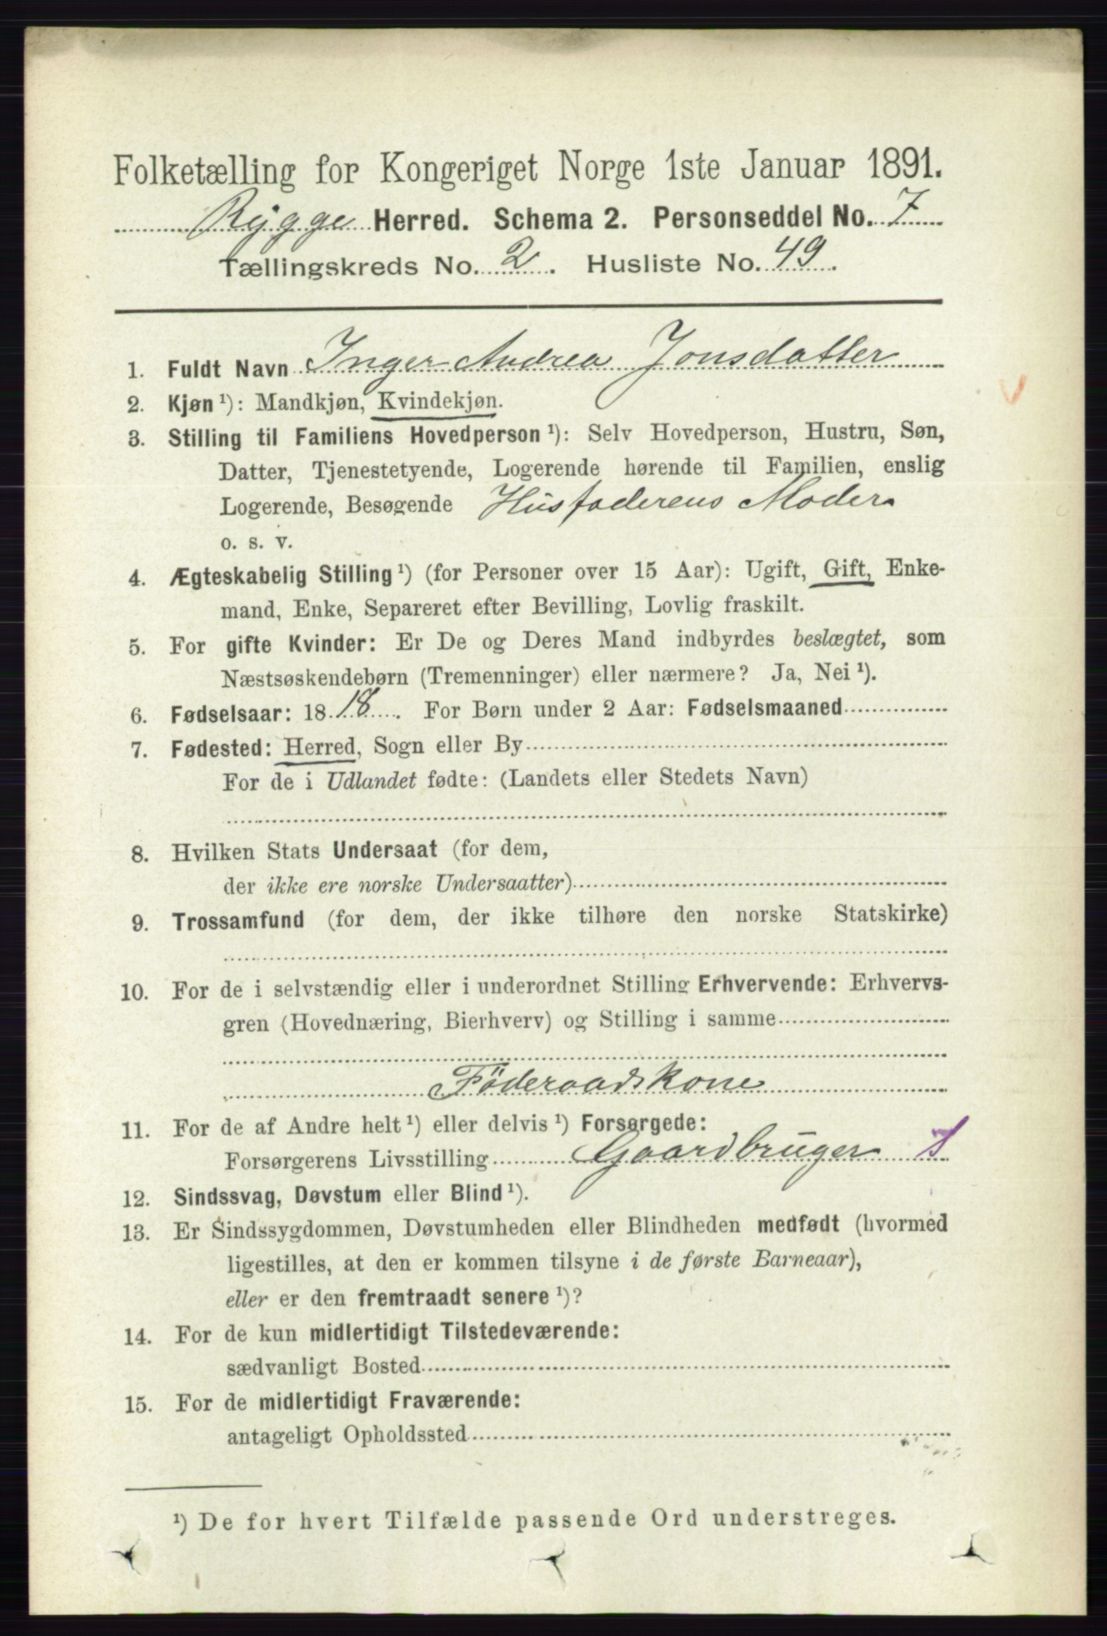 Folketælling for Kongeriget Norge 1ste Januar 1891.
Rygge Herred. Schema 2. Personseddel No. 7
Tællingskreds No. 2. Husliste No. 49.
1. Fuldt Navn Inger Andrea Jonsdatter
2. Kjøn ¹): Mandkjøn, Kvindekjøn.
3. Stilling til Familiens Hovedperson ¹): Selv Hovedperson, Hustru, Søn,
Datter, Tjenestetyende, Logerende hørende til Familien, enslig
Logerende, Besøgende Husfaderens Moder
o. s. v.
4. Ægteskabelig Stilling ¹) (for Personer over 15 Aar): Ugift, Gift, Enke-
mand, Enke, Separeret efter Bevilling, Lovlig fraskilt.
5. For gifte Kvinder: Er De og Deres Mand indbyrdes beslægtet, som
Næstsøskendebørn (Tremenninger) eller nærmere? Ja, Nei ¹).
6. Fødselsaar: 18 18. For Børn under 2 Aar: Fødselsmaaned
7. Fødested: Herred, Sogn eller By
For de i Udlandet fødte: (Landets eller Stedets Navn)
8. Hvilken Stats Undersaat (for dem,
der ikke ere norske Undersaatter)
9. Trossamfund (for dem, der ikke tilhøre den norske Statskirke)
10. For de i selvstændig eller i underordnet Stilling Erhvervende: Erhvervs-
gren (Hovednæring, Bierhverv) og Stilling i samme
Föderaadskone
11. For de af Andre helt ¹) eller delvis ¹) Forsørgede:
Forsørgerens Livsstilling Gaardbruger
12. Sindssvag, Døvstum eller Blind ¹).
13. Er Sindssygdommen, Døvstumheden eller Blindheden medfødt (hvormed
ligestilles, at den er kommen tilsyne i de første Barneaar),
eller er den fremtraadt senere ¹)?
14. For de kun midlertidigt Tilstedeværende:
sædvanligt Bosted
15. For de midlertidigt Fraværende:
antageligt Opholdssted
¹) De for hvert Tilfælde passende Ord understreges.